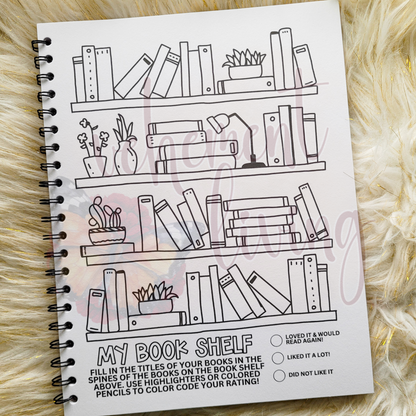 Vehement
Living
MY BOOK SHELF
FILL IN THE TITLES OF YOUR BOOKS IN THE
SPINES OF THE BOOKS ON THE BOOK SHELF
ABOVE. USE HIGHLIGHTERS OR COLORED
PENCILS TO COLOR CODE YOUR RATING!
LOVED IT & WOULD
READ AGAIN!
LIKED IT A LOT!
DID NOT LIKE IT